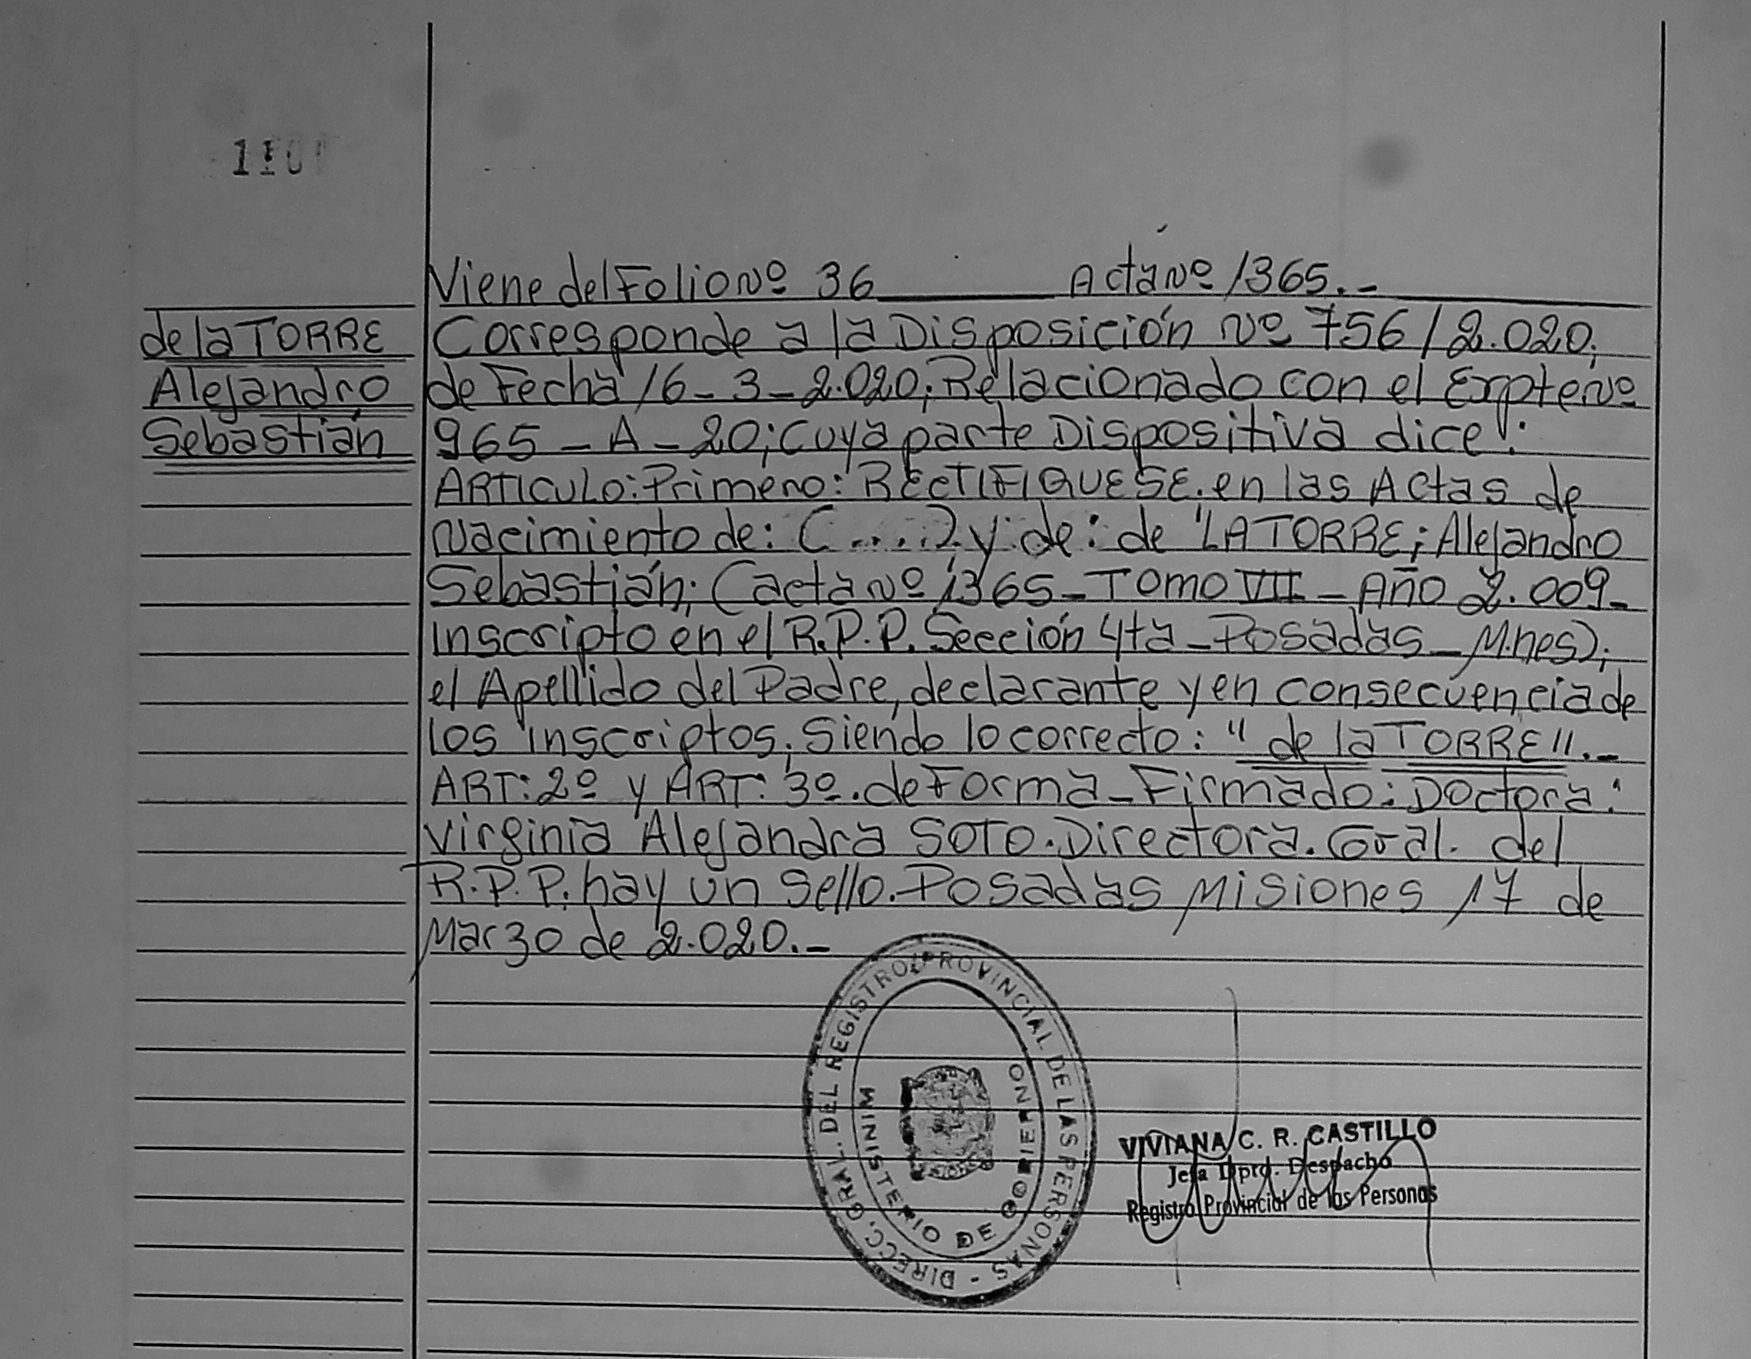 Viene del Folio Nº 36 Acta Nº 1365.-
de la TORRE
Alejandro
Sebastián
Corresponde a la Disposición Nº 756/2.020;
de Fecha 16-3-2.020; Relacionado con el Expte Nº
965-A-20; cuya parte Dispositiva dice:
ARTICULO: Primero: RECTIFIQUESE. en las Actas de
Nacimiento de: (....) y de: de LA TORRE; Alejandro
Sebastián; (acta Nº 1365-Tomo VII-Año 2.009-
Inscripto en el R.P.P. Sección 4ta-Posadas-Mnes);
el Apellido del Padre, declarante y en consecuencia de
los inscriptos, siendo lo correcto: "de la TORRE".-
ART: 2º y ART: 3º. de Forma-Firmado: Doctora:
Virginia Alejandra SOTO. Directora. Gral. del
R.P.P. hay un sello. Posadas Misiones 17 de
Marzo de 2.020.-
DIRECC. GRAL. DEL REGISTRO PROVINCIAL DE LAS PERSONAS -
MINISTERIO DE GOBIERNO
VIVIANA C. R. CASTILLO
Jefa Dpto. Despacho
Registro Provincial de las Personas